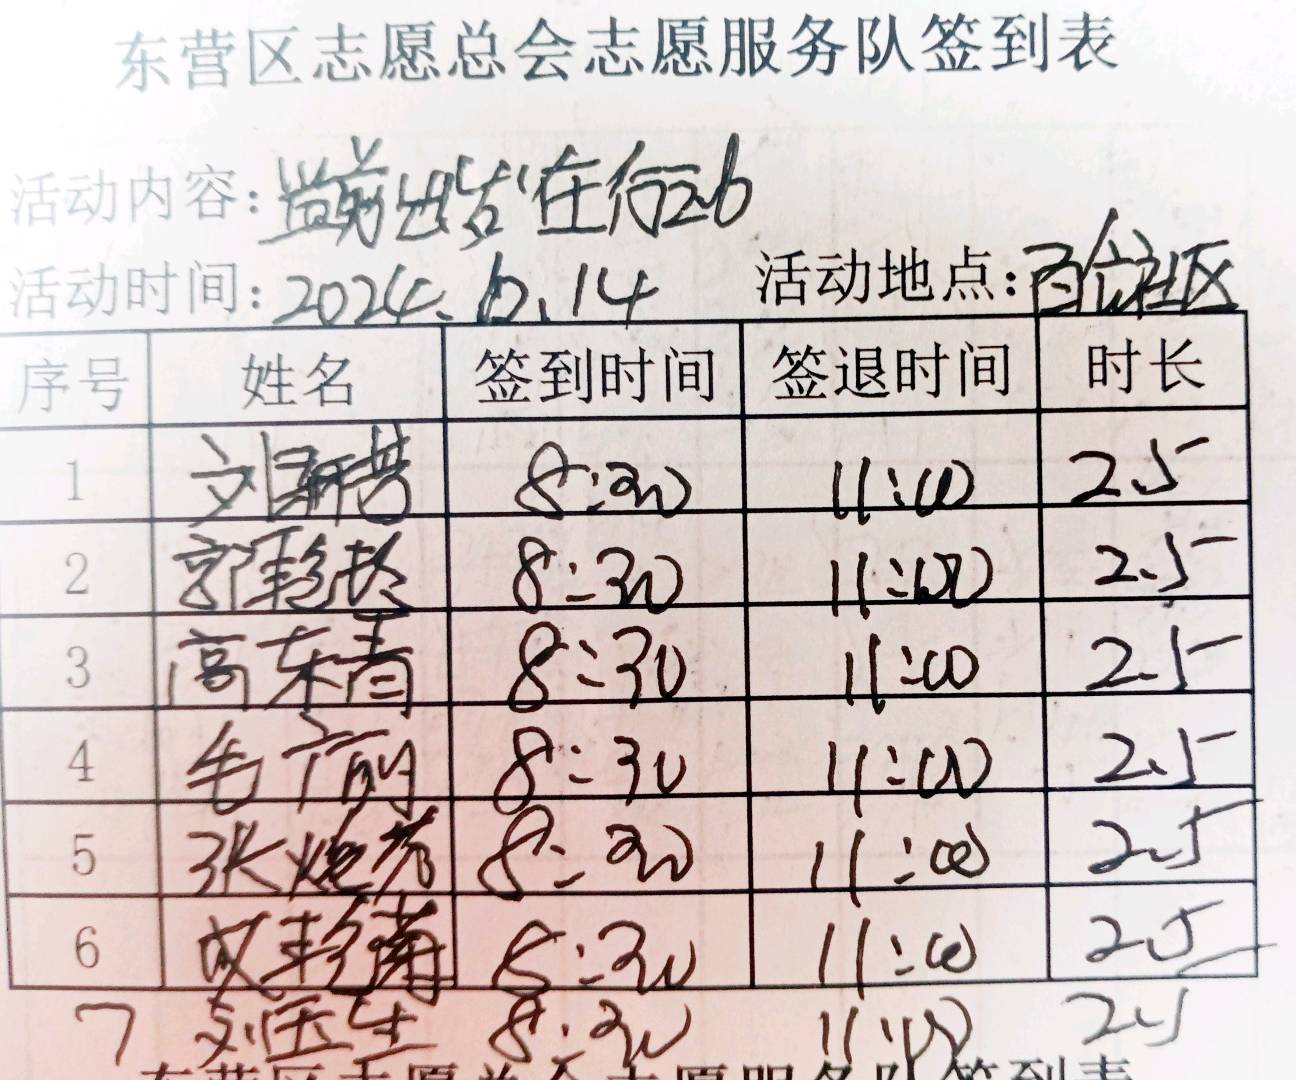 东营区志愿总会志愿服务队签到表
活动内容: 在行动
活动时间: 2024.6.14 活动地点: 社区
序号 姓名 签到时间 签退时间 时长
1 刘 8:30 11:00 2.5
2 郭艳玲 8:30 11:00 2.5
3 高东青 8:30 11:00 2.5
4 毛广 8:30 11:00 2.5
5 张艳芳 8:30 11:00 2.5
6 艳 8:30 11:00 2.5
7 刘玉生 8:30 11:00 2.5
东营区志愿总会志愿服务队签到表